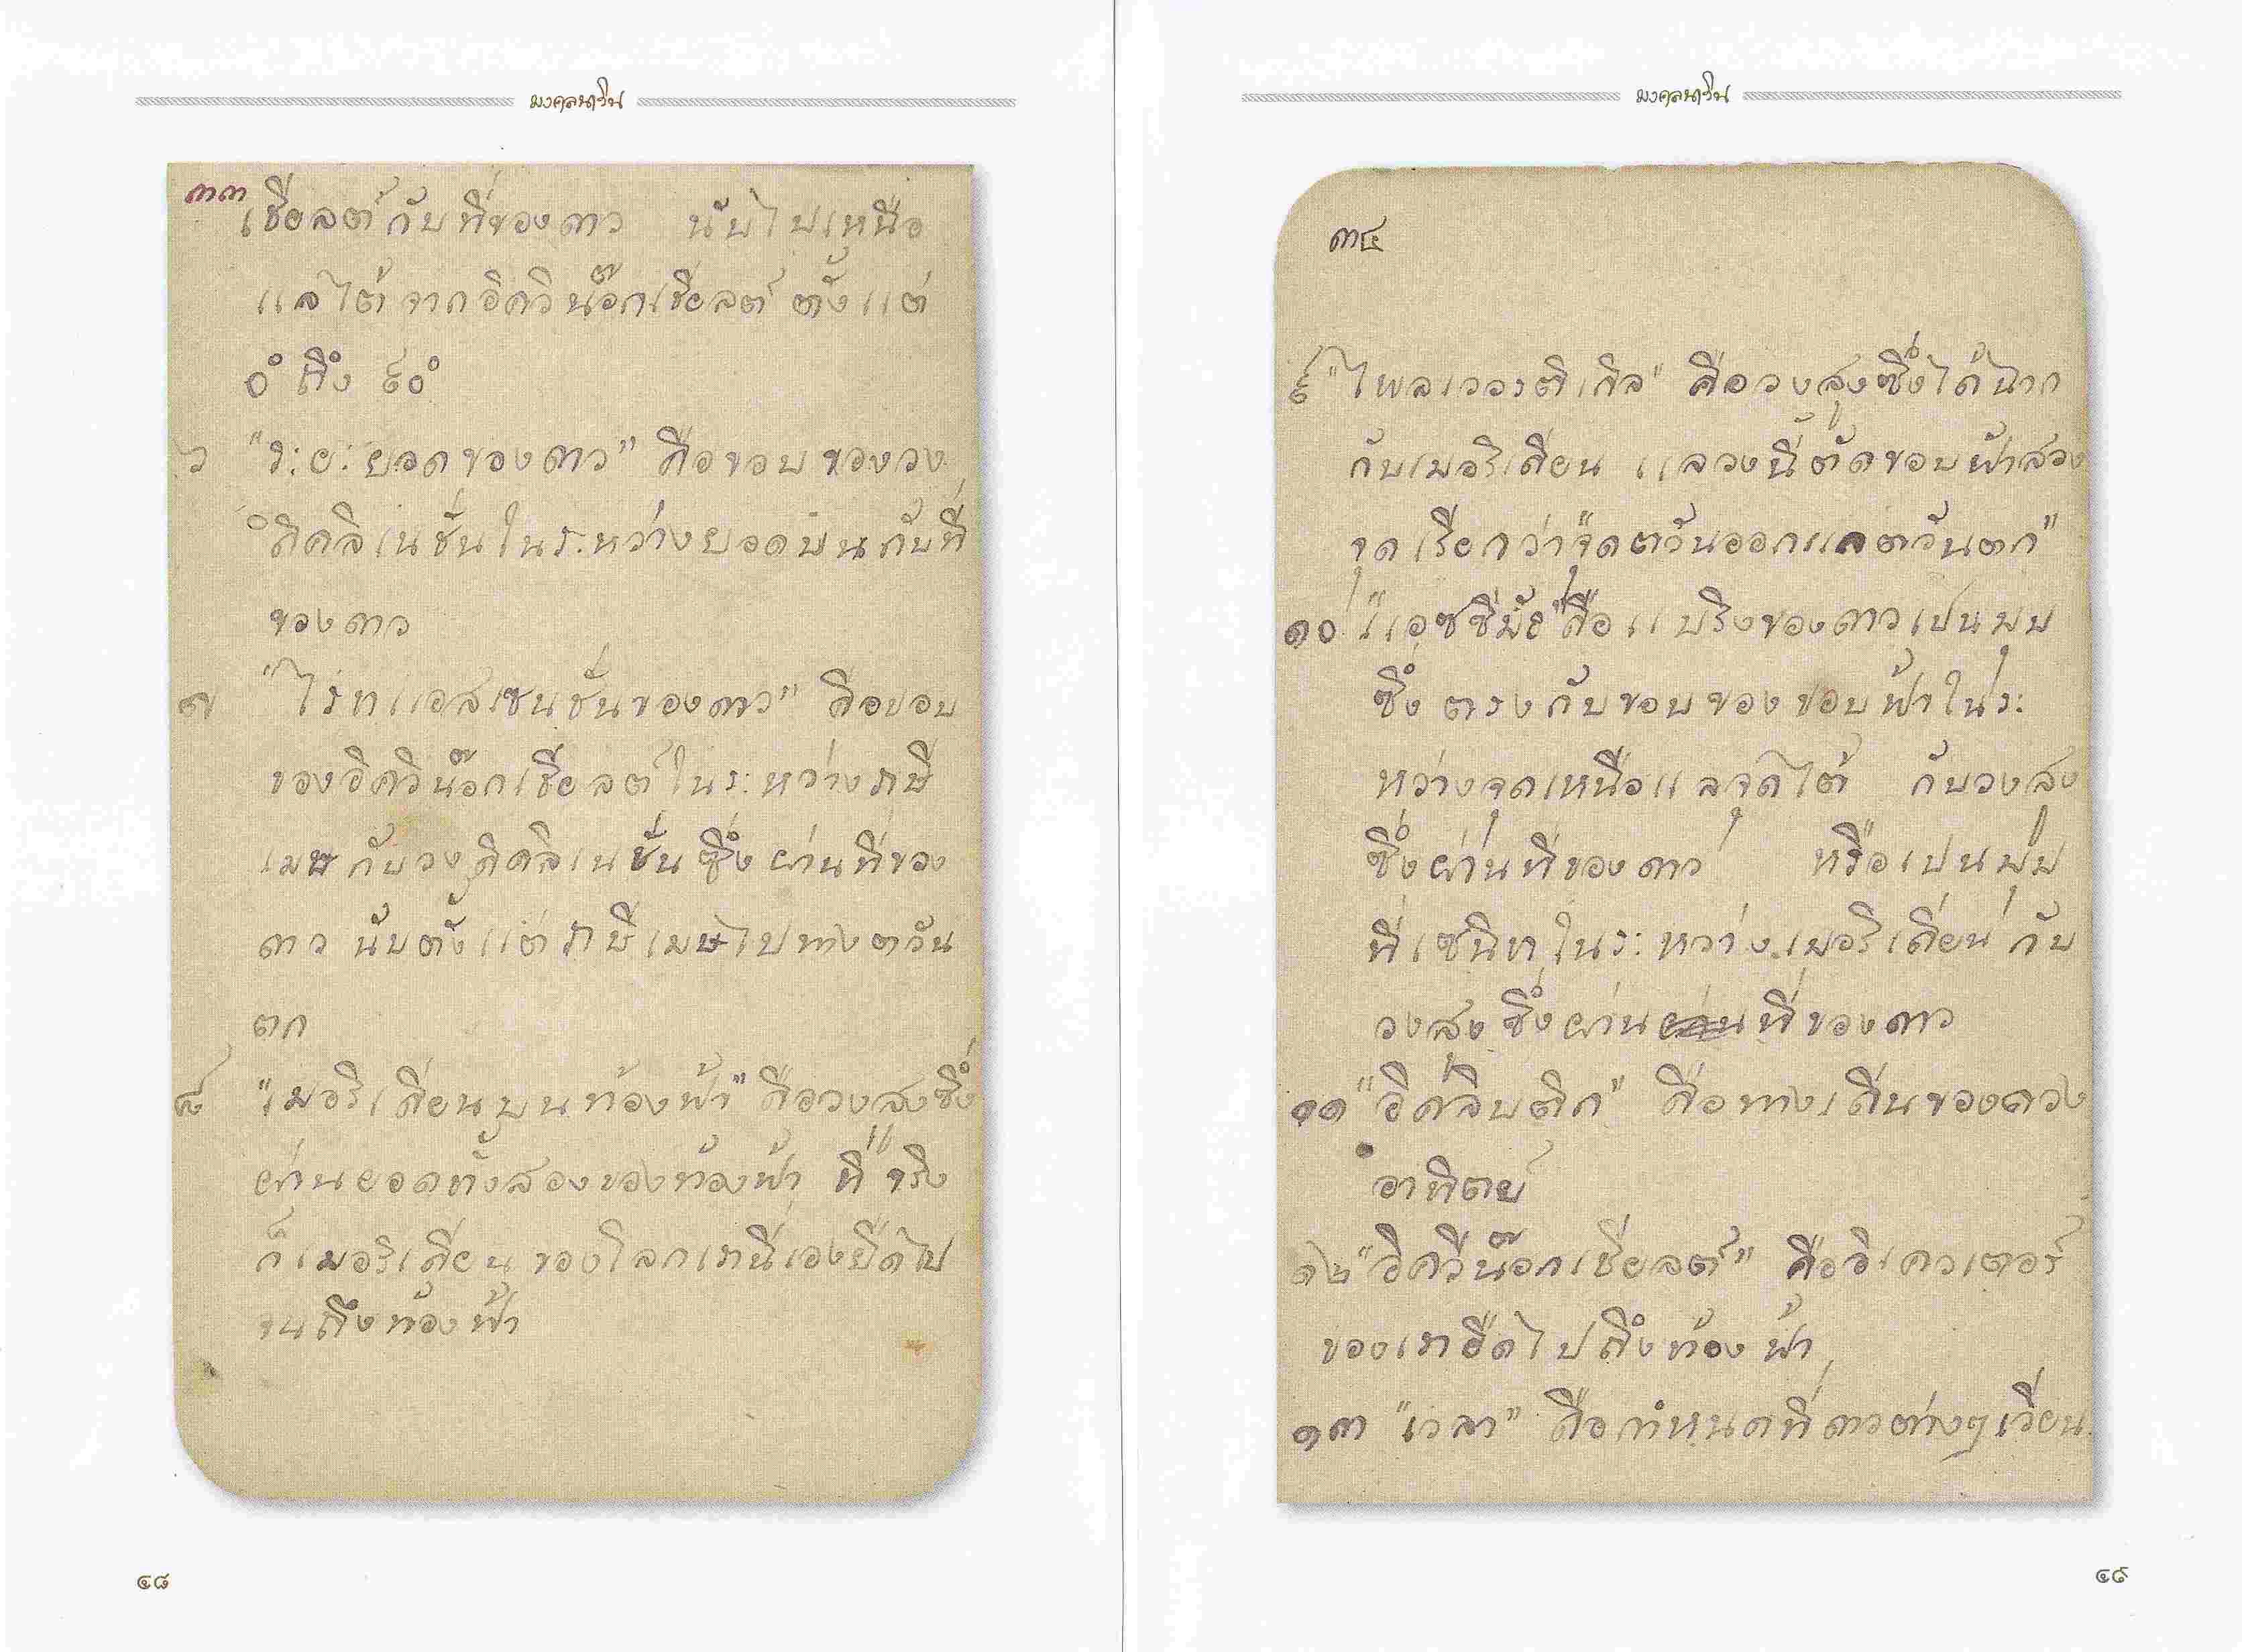 มงคลนาวิน
๓๓
เชียลต์กับที่ของดาว นับไปเหนือ
แลใต้จากอิควิน๊อกเชียลต์ ตั้งแต่
๐° ถึง ๙๐°
๖ "ระยะยอดของดาว" คือขอบของวง
ดิคลิเนชั่นในระหว่างยอดบนกับที่
ของดาว
๗ "ไร๋ทแอสเซนชั่นของดาว" คือขอบ
ของอิควิน๊อกเชียลต์ในระหว่างราษี
เมษกับวงดิคลิเนชั่นซึ่งผ่านที่ของ
ดาว นับตั้งแต่ราษีเมษไปทางตวัน
ตก
๘ "เมอริเดียนบนท้องฟ้า" คือวงสูงซึ่ง
ผ่านยอดทั้งสองของท้องฟ้า ที่จริง
ก็เมอริเดียนของโลกเรานี่เองยืดไป
จนถึงท้องฟ้า
๔๘
มงคลนาวิน
๓๔
๙ "ไพลเวอรติเกิล" คือวงสูงซึ่งได้ฉาก
กับเมอริเดียน แลวงนี้ตัดขอบฟ้าสอง
จุดเรียกว่า "จุดตวันออกแลตวันตก"
๑๐ "แอซซิมัธ" คือแบริงของดาวเปนมุม
ซึ่งตรงกับขอบของขอบฟ้าในระ
หว่างจุดเหนือแลจุดใต้ กับวงสูง
ซึ่งผ่านที่ของดาว หรือเปนมุม
ที่เซนิทในระหว่างเมอริเดียนกับ
วงสูงซึ่งผ่านที่ของดาว
๑๑ "อิคลิบติก" คือทางเดินของดวง
อาทิตย์
๑๒ "อิควิน๊อกเชียลต์" คืออิเควเตอร์
ของเรายืดไปถึงท้องฟ้า
๑๓ "เวลา" คือกำหนดที่ดาวต่างๆเวียน
๔๙